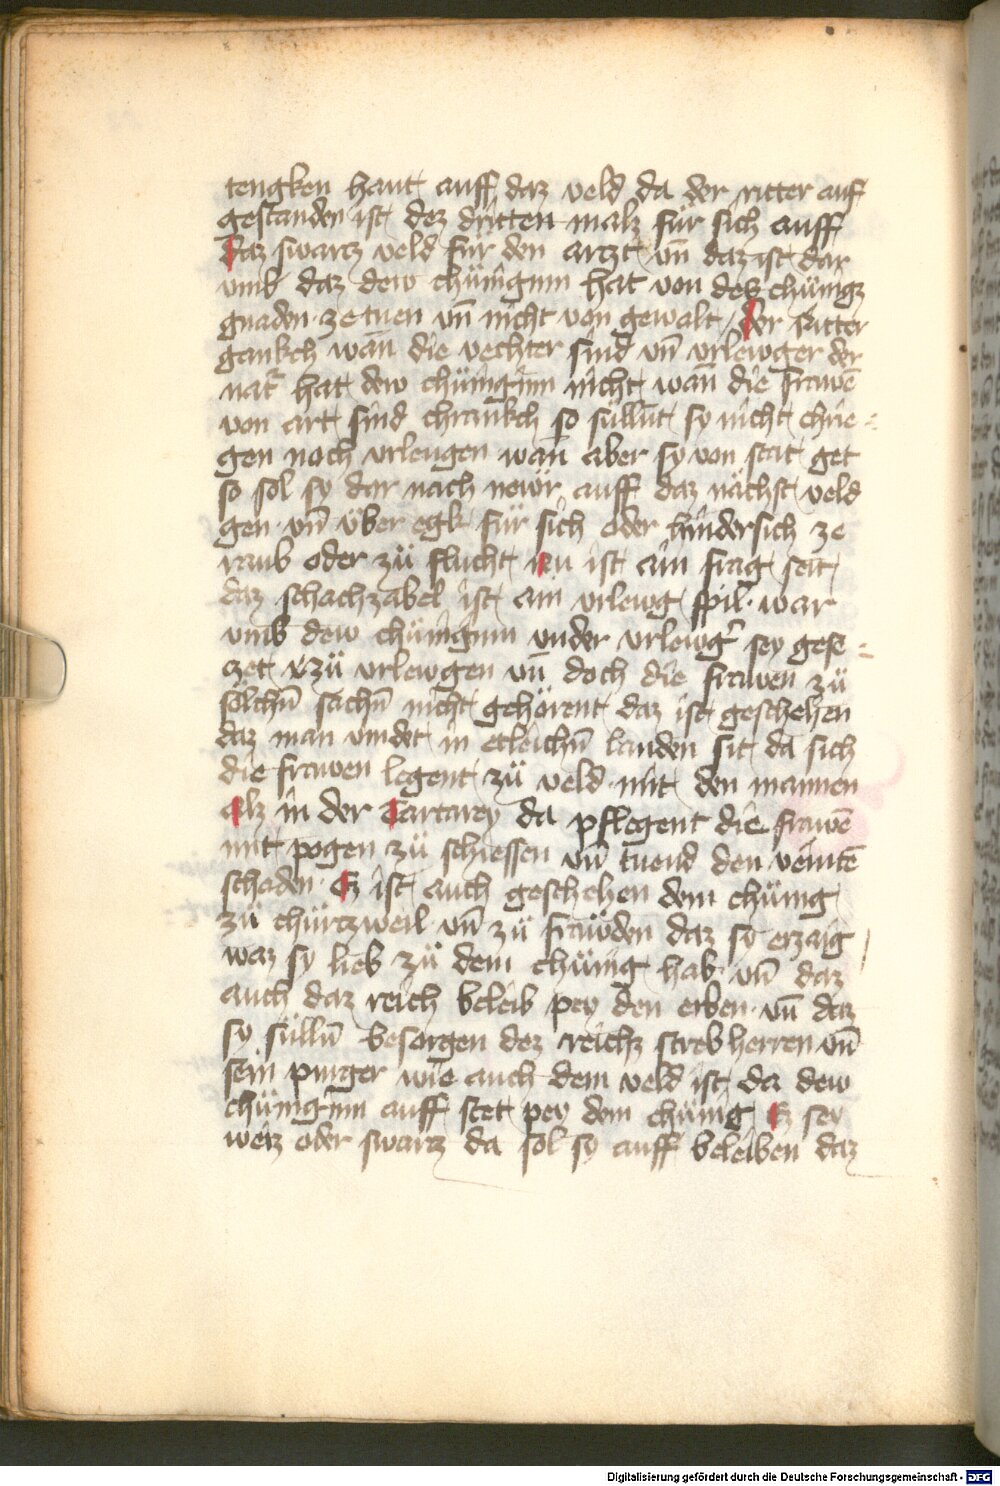 tengken hant auff daz veld da der ritter auf
gestanden ist dez dritten malz für sich auff
Daz swartz veld für den artzt vn̄ daz ist dar
vmb daz dew chüniginn hat von dez chünigz
gnaden ze tuen vn̄ nicht von gewalt / der ritter
gankch wān die vechter sind vn̄ vrlewger der
nat᷑ hat dew chüniginn nicht wān die frawē
von art sind chrankch so süllnt sy nicht chrie =
gen noch vrleugen wān aber sy von stat get
so sol sy dar nach newr auff daz nächst veld
gen vn̄ über egk für sich oder hindersich ze
raub oder zü flucht Nu ist ain frag seit
daz schachzabel ist ain vrlewg spil war
vmb dew chüniginn vnder vrlewg᷑ sey gese =
czet zü vrlewgen vn̄ doch die frawen zü
sölchn̄ sachn̄ nicht gehörent daz ist geschehen
daz man vindet in etleichn̄ landen sit da sich
die frawen legent zü veld mit den mannen
Alz in der Tartarey da pflegent die frawē
mit pogen zü schiessen vn̄ tuend den veintē
schaden Ez ist auch geschehen dem chünig
zü churtzweil vn̄ zü fräwden daz sy erzaig
waz sy lieb zü dem chünig hab vn̄ daz
auch daz reich beleib pey den erben vn̄ daz
sy sülln̄ besorgen dez reichz herren vn̄
sein purger wie auch dem veld ist da dew
chüniginn auff stet pey dem chünig Ez sey
weiz oder swartz da sol sy auff beleiben daz
Digitalisierung gefördert durch die Deutsche Forschungsgemeinschaft - DFG